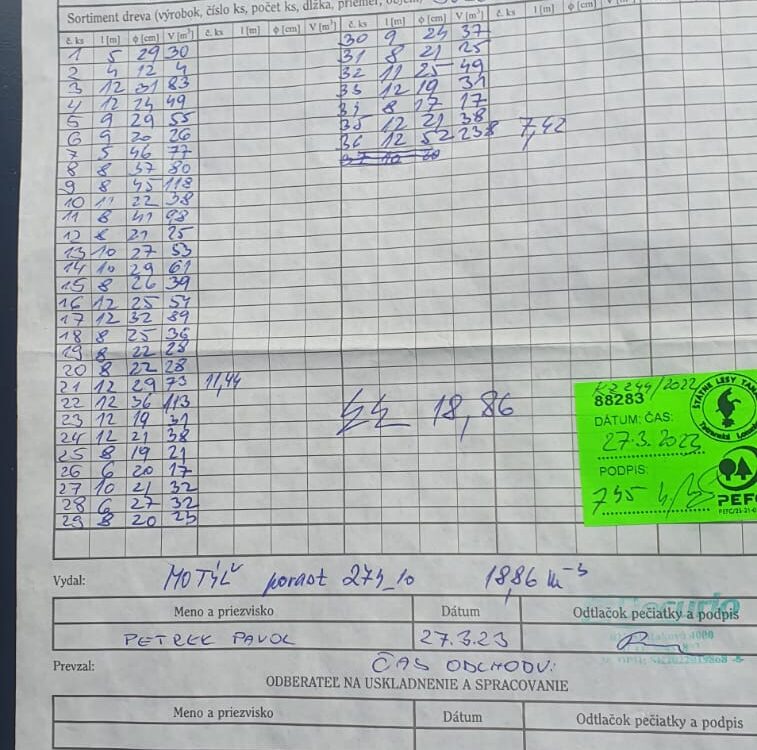 Sortiment dreva (výrobok, číslo ks, počet ks, dĺžka, priemer, objem)
č. ks l [m] φ [cm] V [m³] č. ks l [m] φ [cm] V [m³] č. ks l [m] φ [cm] V [m³] č. ks l [m] φ [cm] V [m³]
1 5 29 30 30 9 24 37
2 4 12 4 31 8 21 25
3 12 31 83 32 11 25 49
4 12 24 49 33 12 19 31
5 9 29 55 34 8 17 17
6 9 20 26 35 12 21 38
7 5 46 77 36 12 52 238 7,42
8 8 37 80 37 10 20
9 8 45 118
10 11 22 38
11 8 41 98
12 8 21 25
13 10 27 53
14 10 29 61
15 8 26 39
16 12 25 54
17 12 32 89
18 8 25 36
19 8 22 28
20 8 22 28
21 12 29 73 11,44
22 12 36 113
23 12 19 31
24 12 21 38
25 8 19 21
26 6 20 17
27 10 21 32
28 6 27 32
29 8 20 23
18,86
244/2022
88283
DÁTUM: ČAS:
27.3.2023
PODPIS:
745
ŠTÁTNE LESY
PEFC
Vydal: MOTÝĽ porast 274_10 18,86 m-3
Meno a priezvisko Dátum Odtlačok pečiatky a podpis
PETREK PAVOL 27.3.23
Prevzal: ČAS ODCHODU:
ODBERATEĽ NA USKLADNENIE A SPRACOVANIE
Meno a priezvisko Dátum Odtlačok pečiatky a podpis